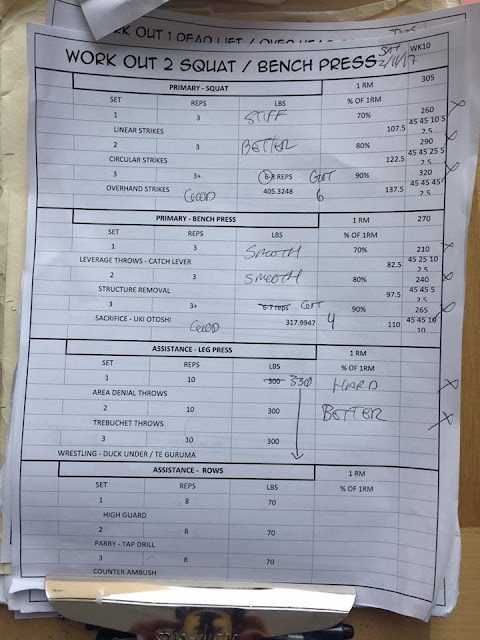 WORK OUT 1 DEAD LIFT / OVER HEAD
WORK OUT 2 SQUAT / BENCH PRESS SAT WK10
PRIMARY - SQUAT 1 RM 305
SET REPS LBS % OF 1RM
1 3 STIFF 70% 260
LINEAR STRIKES 107.5 45 45 10 5 2.5
2 3 BETTER 80% 290
CIRCULAR STRIKES 122.5 45 45 25 5 2.5
3 3+ REPS GOT 90% 320
OVERHAND STRIKES GOOD 405.3248 6 137.5 45 45 45 2.5
PRIMARY - BENCH PRESS 1 RM 270
SET REPS LBS % OF 1RM
1 3 SMOOTH 70% 210
LEVERAGE THROWS - CATCH LEVER 82.5 45 25 10 2.5
2 3 SMOOTH 80% 240
STRUCTURE REMOVAL 97.5 45 45 5 2.5
3 3+ 6-7 reps GOT 90% 265
SACRIFICE - UKI OTOSHI GOOD 317.9947 4 110 45 45 10 10
ASSISTANCE - LEG PRESS 1 RM
SET REPS LBS % OF 1RM
1 10 300 HARD
AREA DENIAL THROWS
2 10 300 BETTER
TREBUCHET THROWS
3 10 300
WRESTLING - DUCK UNDER / TE GURUMA
ASSISTANCE - ROWS 1 RM
SET REPS LBS % OF 1RM
1 8 70
HIGH GUARD
2 8 70
PARRY - TAP DRILL
3 8 70
COUNTER AMBUSH